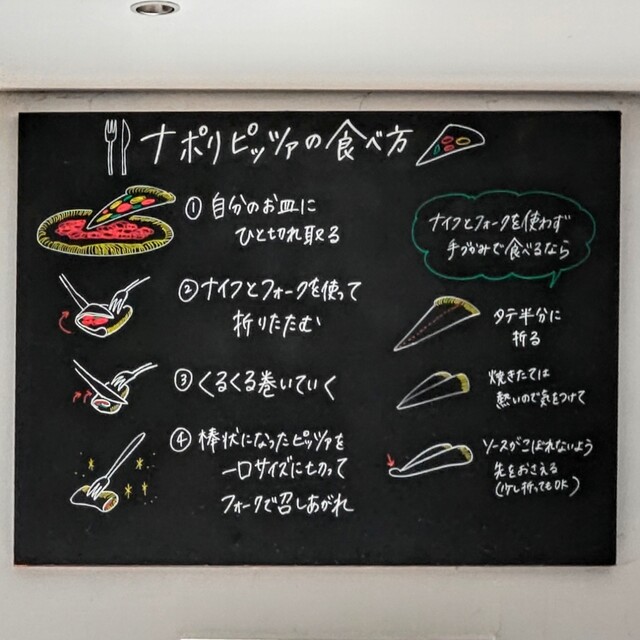 ナポリピッツァの食べ方
①自分のお皿に
ひと切れ取る
②ナイフとフォークを使って
折りたたむ
③くるくる巻いていく
④棒状になったピッツァを
一口サイズに切って
フォークで召しあがれ
ナイフとフォークを使わず
手づかみで食べるなら
タテ半分に
折る
焼きたては
熱いので気をつけて
ソースがこぼれないよう
先をおさえる
(少し折ってもOK)